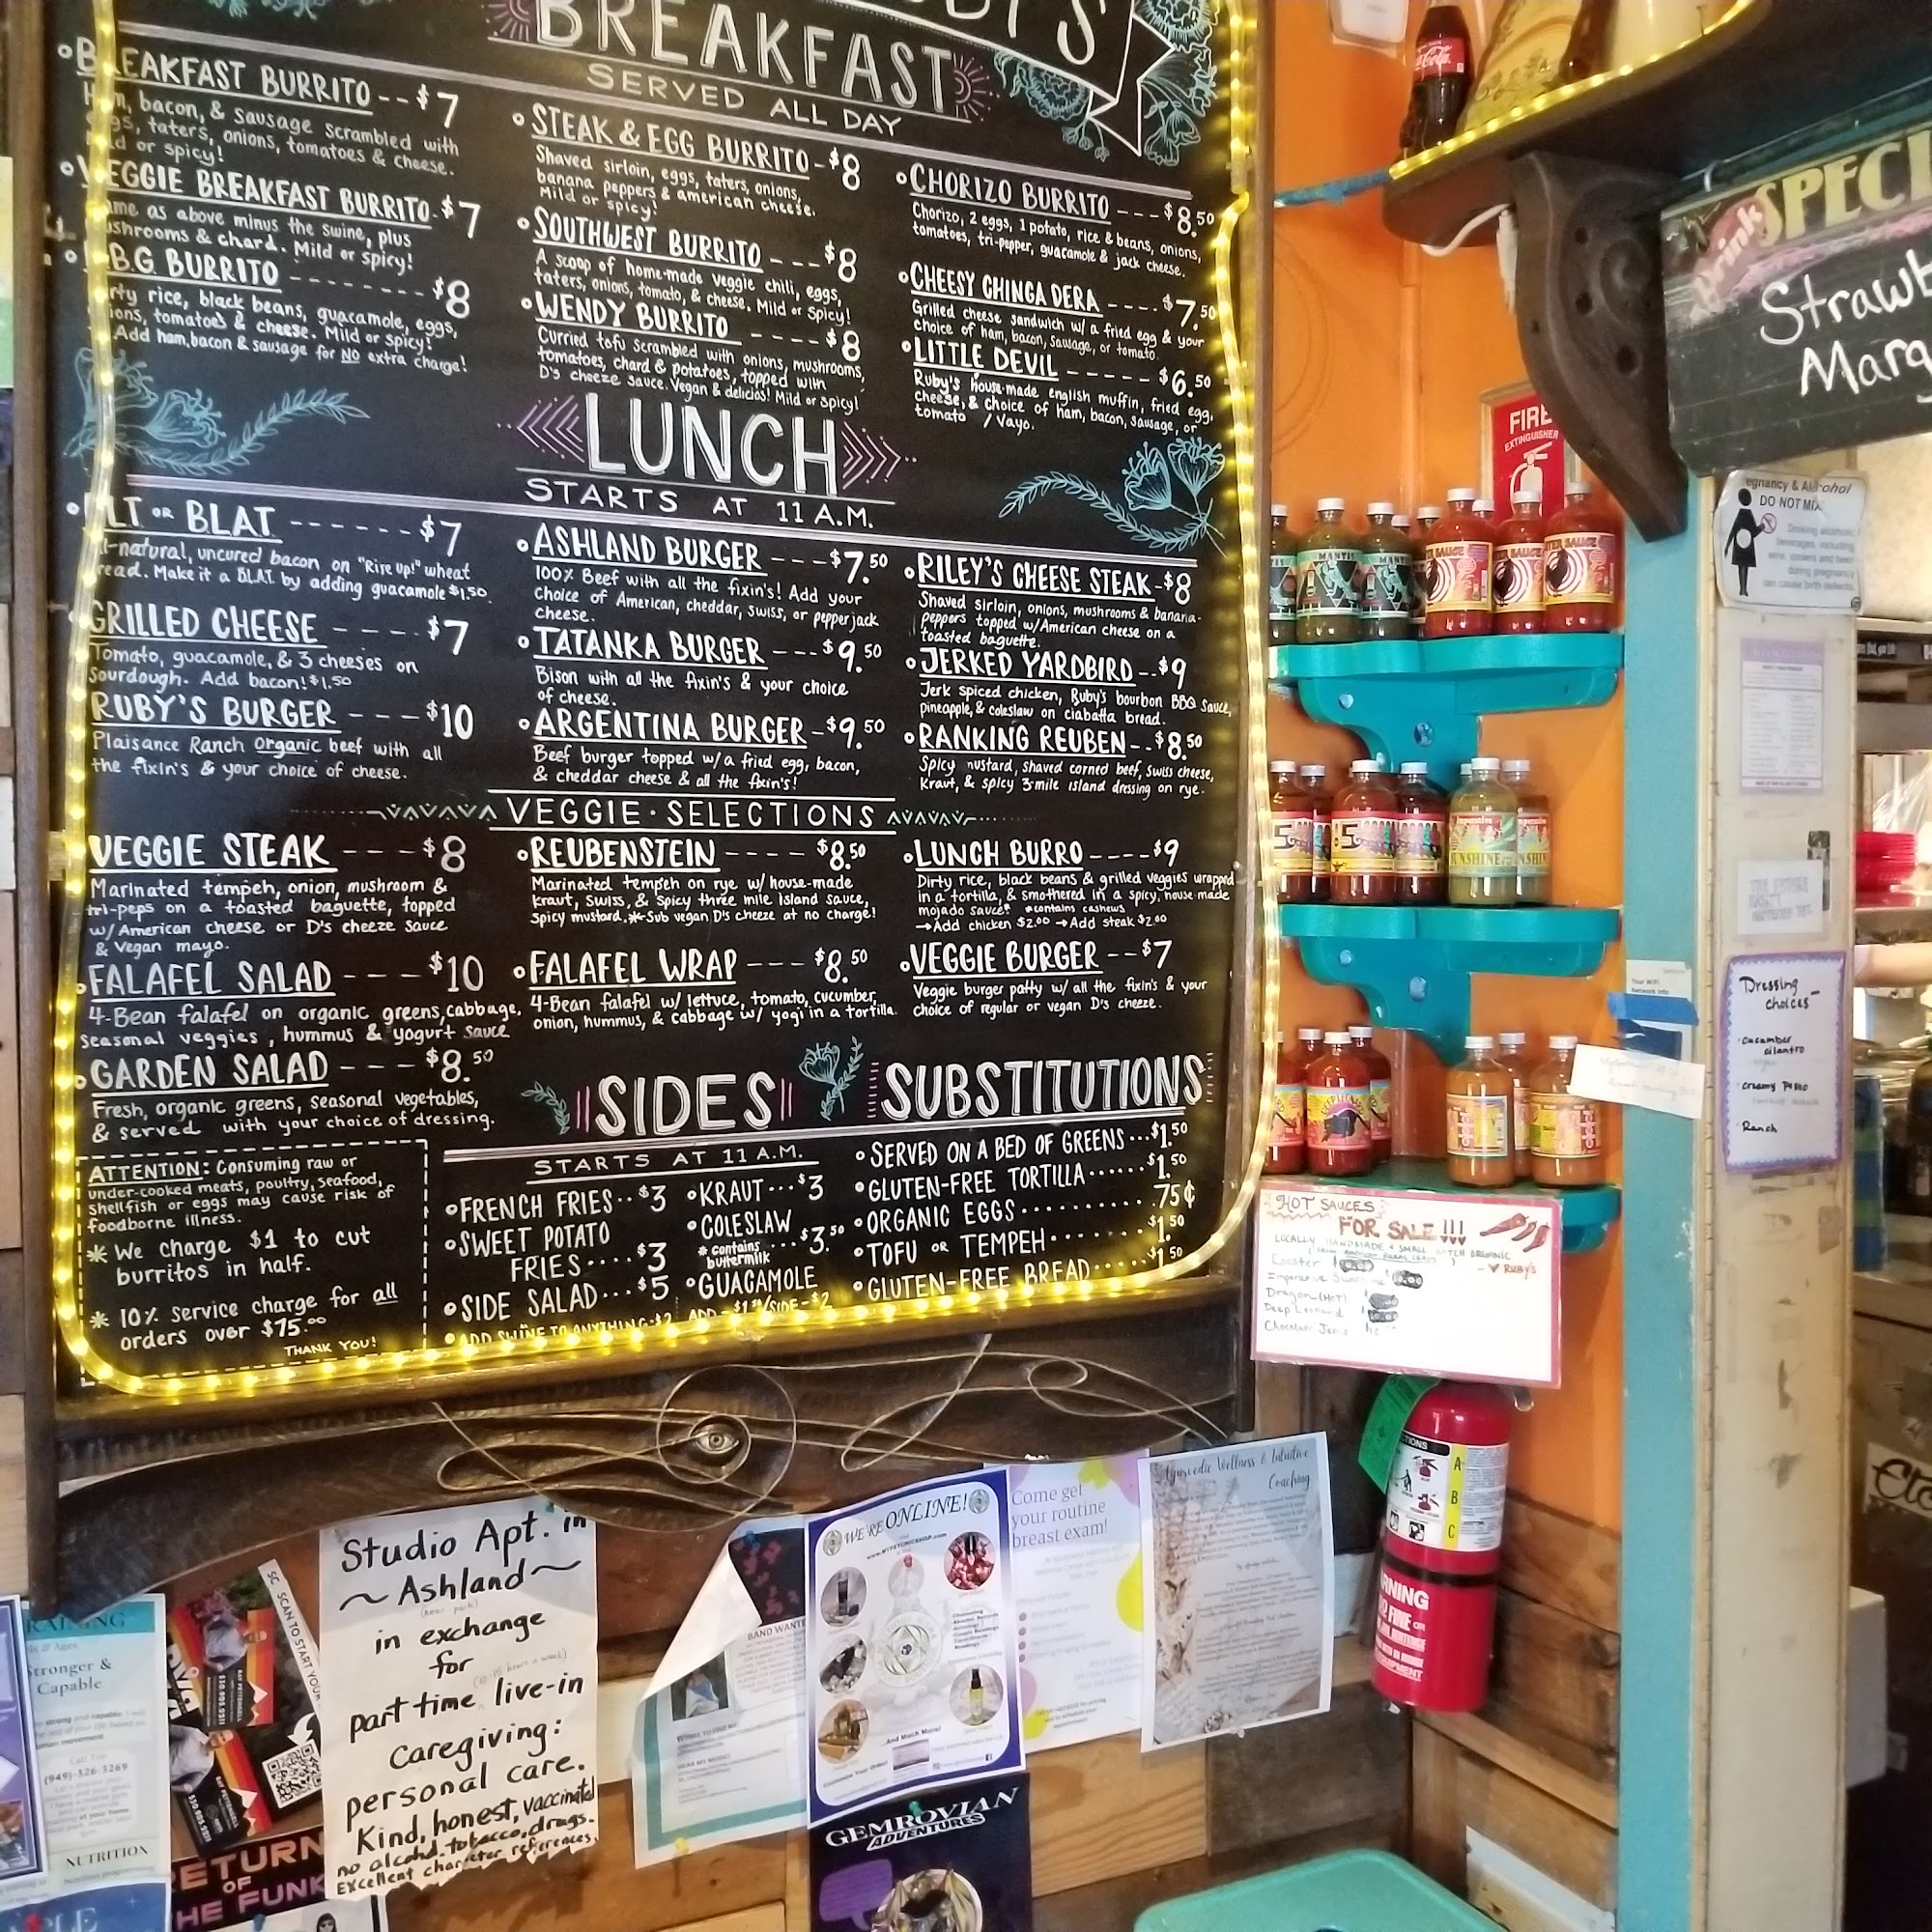 BREAKFAST
SERVED ALL DAY
BREAKFAST BURRITO -- $7
Ham, bacon, & sausage scrambled with
eggs, taters, onions, tomatoes & cheese.
Mild or spicy!
VEGGIE BREAKFAST BURRITO - $7
Same as above minus the swine, plus
mushrooms & chard. Mild or spicy!
B.G. BURRITO -------- $8
Dirty rice, black beans, guacamole, eggs,
onions, tomatoes & cheese. Mild or spicy!
Add ham, bacon & sausage for NO extra charge!
STEAK & EGG BURRITO - $8
Shaved sirloin, eggs, taters, onions,
banana peppers & american cheese.
Mild or spicy!
SOUTHWEST BURRITO --- $8
A scoop of home-made veggie chili, eggs,
taters, onions, tomato, & cheese. Mild or Spicy!
WENDY BURRITO ---- $8
Curried tofu scrambled with onions, mushrooms,
tomatoes, chard & potatoes, topped with
D's cheeze sauce. Vegan & delicios! Mild or spicy!
CHORIZO BURRITO --- $8.50
Chorizo, 2 eggs, 1 potato, rice & beans, onions,
tomatoes, tri-pepper, guacamole & jack cheese.
CHEESY CHINGA DERA ---- $7.50
Grilled cheese sandwich w/ a fried egg & your
choice of ham, bacon, sausage, or tomato.
LITTLE DEVIL ----- $6.50
Ruby's house-made english muffin, fried egg,
cheese, & choice of ham, bacon, sausage, or
tomato / Vayo.
LUNCH
STARTS AT 11 A.M.
BLT OR BLAT ------ $7
All-natural, uncured bacon on "Rise up!" wheat
bread. Make it a BLAT by adding guacamole $1.50.
GRILLED CHEESE ---- $7
Tomato, guacamole, & 3 cheeses on
Sourdough. Add bacon! $1.50
RUBY'S BURGER --- $10
Plaisance Ranch organic beef with all
the fixin's & your choice of cheese.
ASHLAND BURGER --- $7.50
100% Beef with all the fixin's! Add your
choice of American, cheddar, swiss, or pepperjack
cheese.
TATANKA BURGER --- $9.50
Bison with all the fixin's & your choice
of cheese.
ARGENTINA BURGER - $9.50
Beef burger topped w/ a fried egg, bacon,
& cheddar cheese & all the fixin's!
RILEY'S CHEESE STEAK - $8
Shaved sirloin, onions, mushrooms & banana-
peppers topped w/ American cheese on a
toasted baguette.
JERKED YARDBIRD -- $9
Jerk spiced chicken, Ruby's bourbon BBQ sauce,
pineapple, & coleslaw on ciabatta bread.
RANKING REUBEN -- $8.50
Spicy mustard, shaved corned beef, swiss cheese,
kraut, & spicy 3 mile island dressing on rye.
VEGGIE · SELECTIONS
VEGGIE STEAK --- $8
Marinated tempeh, onion, mushroom &
tri-peps on a toasted baguette, topped
w/ American cheese or D's cheeze sauce
& Vegan mayo.
FALAFEL SALAD --- $10
4-Bean falafel on organic greens, cabbage,
seasonal veggies, hummus & yogurt sauce
GARDEN SALAD --- $8.50
Fresh, organic greens, seasonal vegetables,
& served with your choice of dressing.
REUBENSTEIN ---- $8.50
Marinated tempeh on rye w/ house-made
kraut, Swiss, & spicy three mile Island sauce,
spicy mustard. *Sub vegan D's cheeze at no charge!
FALAFEL WRAP --- $8.50
4-Bean falafel w/ lettuce, tomato, cucumber,
onion, hummus, & cabbage w/ yogi in a tortilla.
LUNCH BURRO ---- $9
Dirty rice, black beans & grilled veggies wrapped
in a tortilla, & smothered in a spicy, house-made
mojado sauce! *contains cashews
→Add chicken $2.00 →Add steak $2.00
VEGGIE BURGER -- $7
Veggie burger patty w/ all the fixin's & your
choice of regular or vegan D's cheeze.
ATTENTION: Consuming raw or
under-cooked meats, poultry, seafood,
shellfish or eggs may cause risk of
foodborne illness.
* We charge $1 to cut
burritos in half.
* 10% service charge for all
orders over $75.00
THANK YOU!
SIDES
STARTS AT 11 A.M.
FRENCH FRIES .. $3
SWEET POTATO
FRIES .... $3
SIDE SALAD ... $5
ADD SWINE TO ANYTHING - $2
KRAUT ... $3
COLESLAW
* contains buttermilk .... $3.50
GUACAMOLE
ADD - $1.50/SIDE - $2
SUBSTITUTIONS
SERVED ON A BED OF GREENS ... $1.50
GLUTEN-FREE TORTILLA ...... $1.50
ORGANIC EGGS .......... .75¢
TOFU OR TEMPEH ....... $1.50
GLUTEN-FREE BREAD .... $1.50
Coca-Cola
Drink
SPECI
Strawb
Marg
FIRE
EXTINGUISHER
egnancy & Alcohol
DO NOT MIX
Drinking alcoholic
beverages, including
wine, coolers and beer
during pregnancy
can cause birth defects.
MANTIS
SUNSHINE
Your WiFi
Network Info
Dressing
choices
cucumber
cilantro
creamy Pesto
Ranch
HOT SAUCES
FOR SALE!!!
LOCALLY HANDMADE & SMALL BATCH ORGANIC
- ♥ RUBY'S
Dragon (HOT)
Deep Leonard
Studio Apt. in
~ Ashland ~
(near park)
in exchange
for
part time live-in
Caregiving:
personal care.
Kind, honest, vaccinated
no alcohol, tobacco, drugs.
Excellent character references.
WE'RE ONLINE!
...And Much More!
Come get
your routine
breast exam!
Ayurvedic Wellness & Intuitive
Coaching
BAND WANTE
GEMROVIAN
ADVENTURES
RAINING
Stronger &
Capable
(949)-326-3269
NUTRITION
SCAN TO START YOUR
RETURN
OF
THE FUNK
A
B
C
WARNING